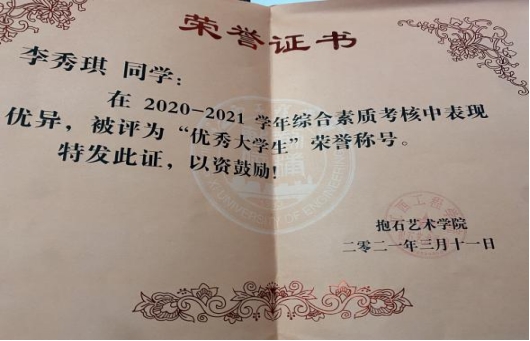 荣誉证书
李秀琪 同学：
在 2020-2021 学年综合素质考核中表现
优异，被评为“优秀大学生”荣誉称号。
特发此证，以资鼓励！
抱石艺术学院
二零二一年三月十一日